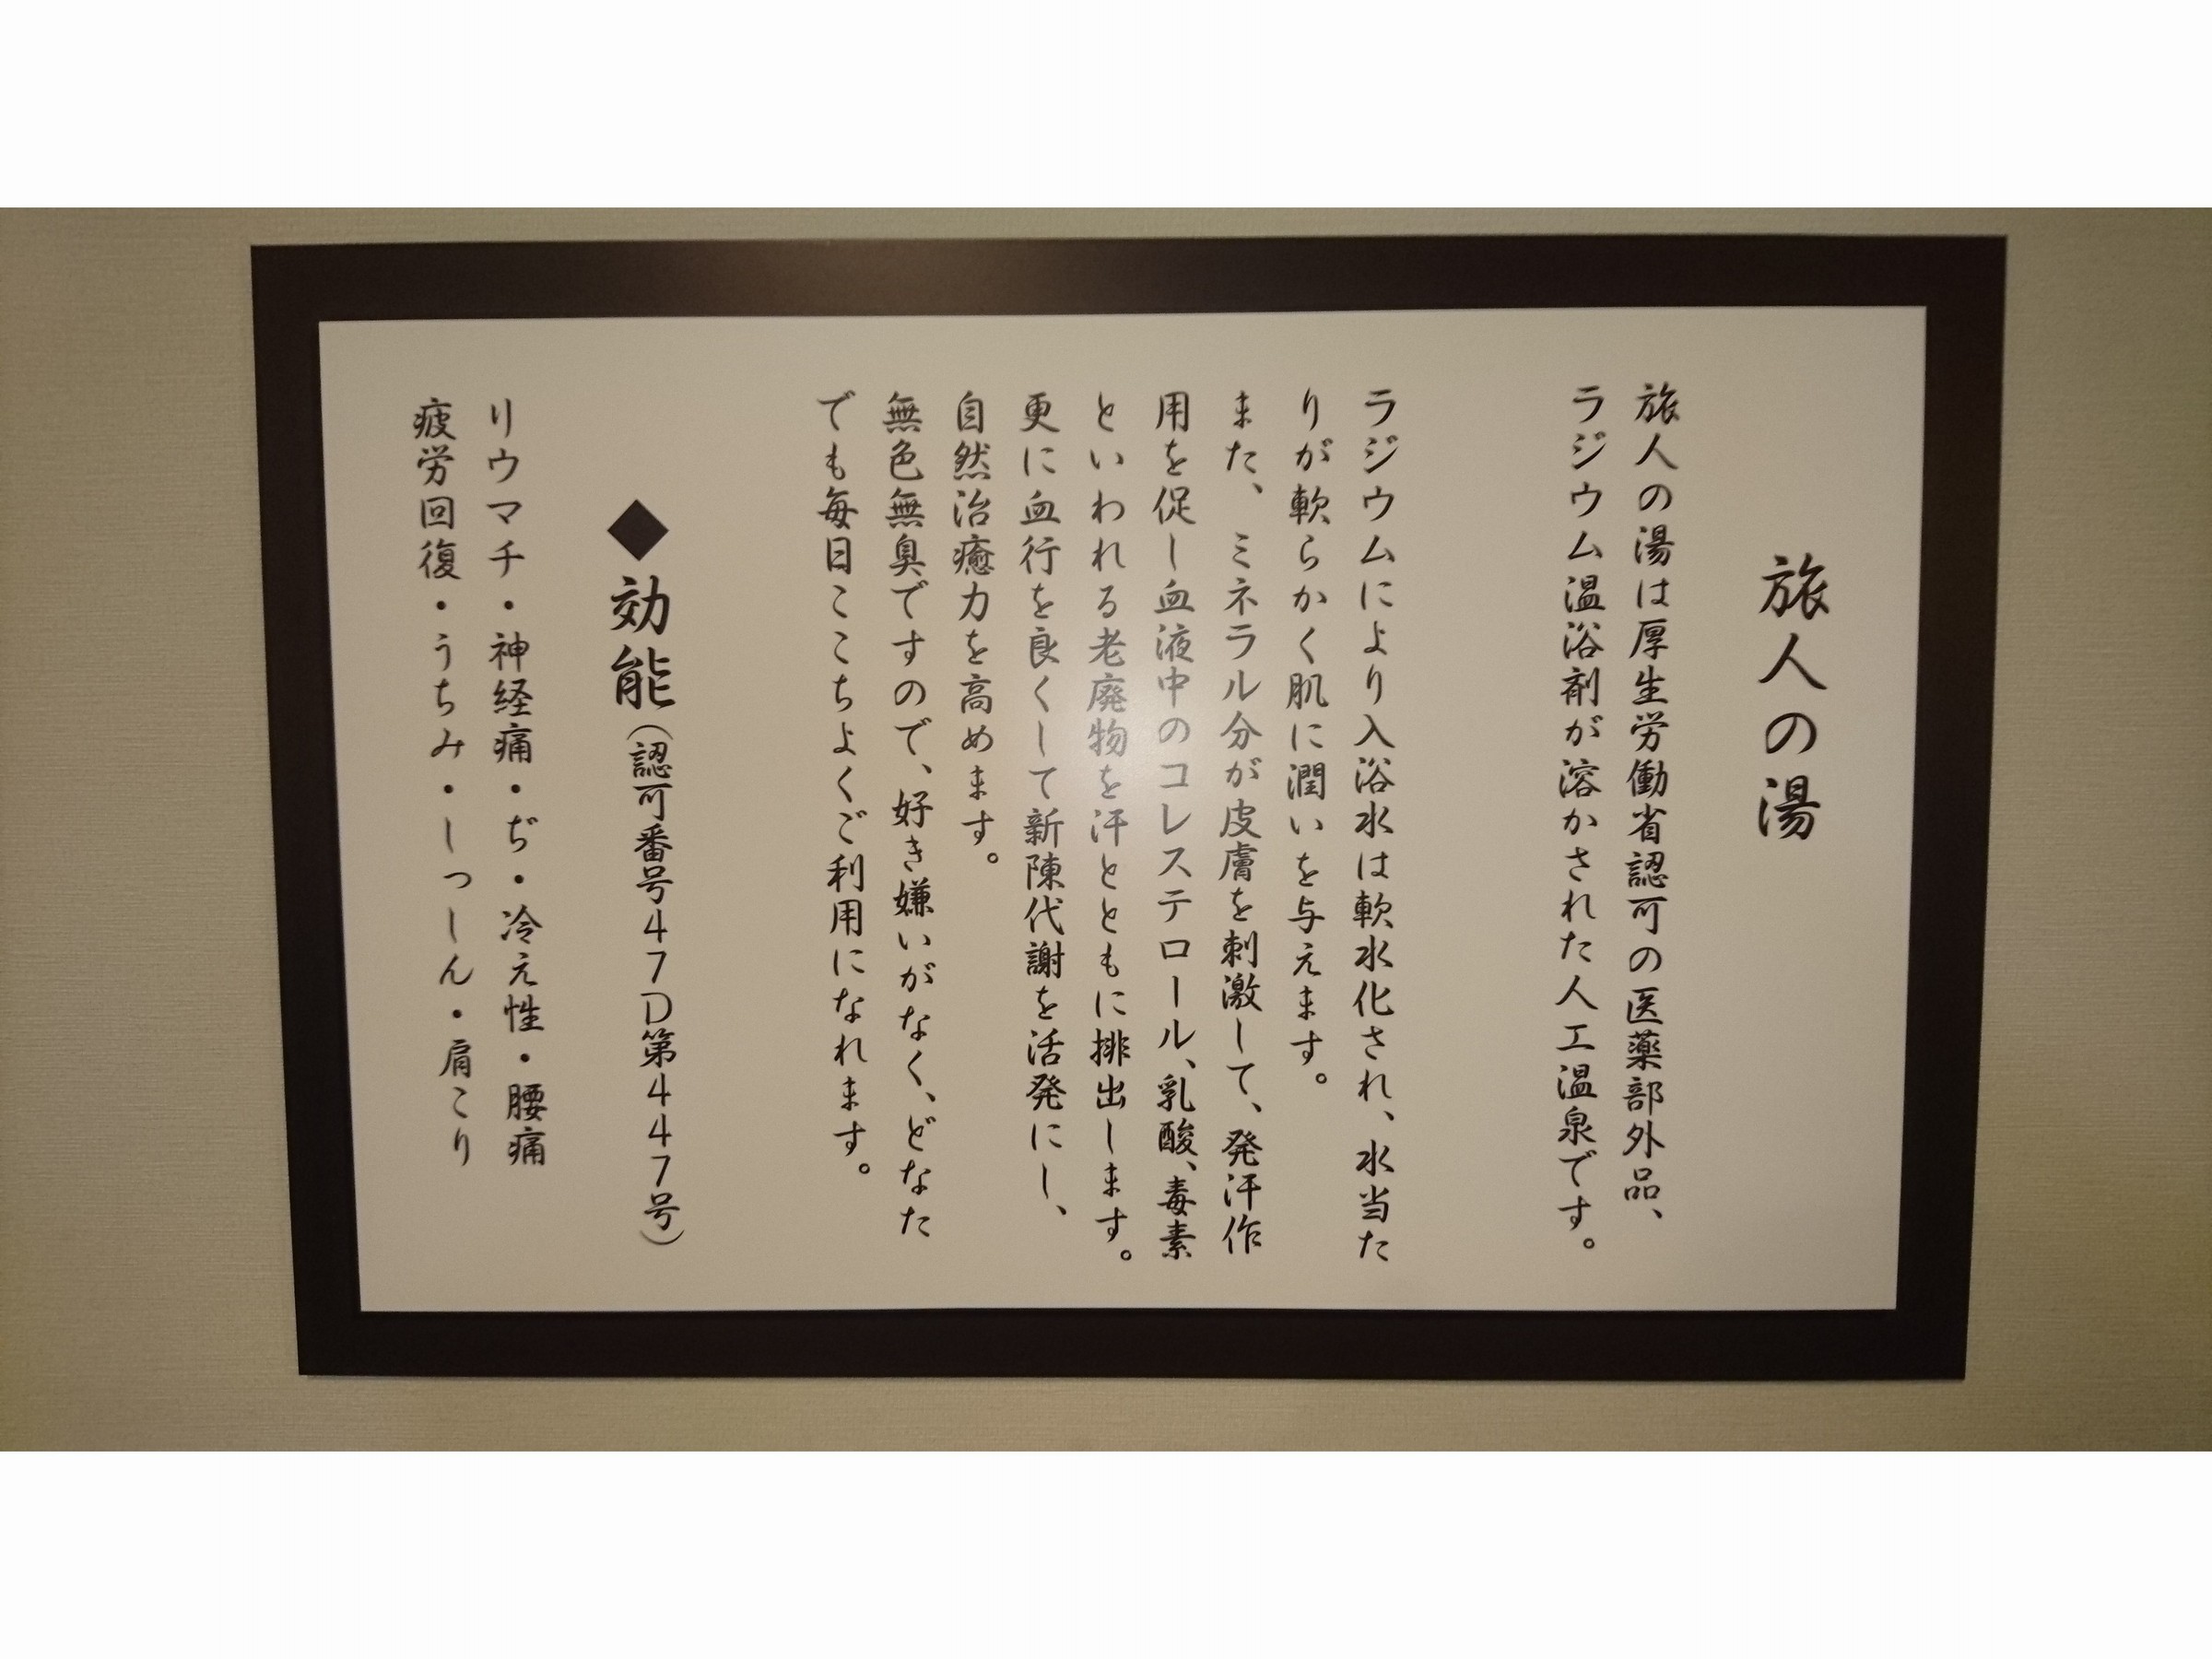 旅人の湯
旅人の湯は厚生労働省認可の医薬部外品、
ラジウム温浴剤が溶かされた人工温泉です。
ラジウムにより入浴水は軟水化され、水当た
りが軟らかく肌に潤いを与えます。
また、ミネラル分が皮膚を刺激して、発汗作
用を促し血液中のコレステロール、乳酸、毒素
といわれる老廃物を汗とともに排出します。
更に血行を良くして新陳代謝を活発にし、
自然治癒力を高めます。
無色無臭ですので、好き嫌いがなく、どなた
でも毎日ここちよくご利用になれます。
◆効能(認可番号47D第447号)
リウマチ・神経痛・ぢ・冷え性・腰痛
疲労回復・うちみ・しっしん・肩こり